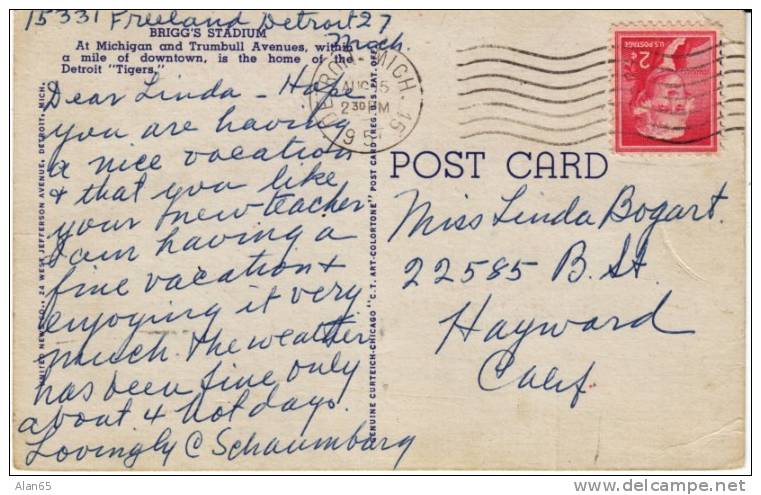 15331 Freeland Detroit 27
Mich.
BRIGG'S STADIUM
At Michigan and Trumbull Avenues, within
a mile of downtown, is the home of the
Detroit "Tigers."
Dear Linda - Hope
you are having
a nice vacation
& that you like
your new teacher
I am having a
fine vacation &
enjoying it very
much. The weather
has been fine only
about 4 hot days.
Lovingly C Schaumburg
UNITED NEWS CO., 24 WEST JEFFERSON AVENUE, DETROIT, MICH.
GENUINE CURTEICH-CHICAGO "C. T. ART-COLORTONE" POST CARD (REG. U. S. PAT. OFF.)
DETROIT, MICH. 15
AUG 5
2 30 PM
1957
U.S. POSTAGE
2¢
POST CARD
Miss Linda Bogart.
22585 B. St.
Hayward
Calif.
Alan65
delcampe.net